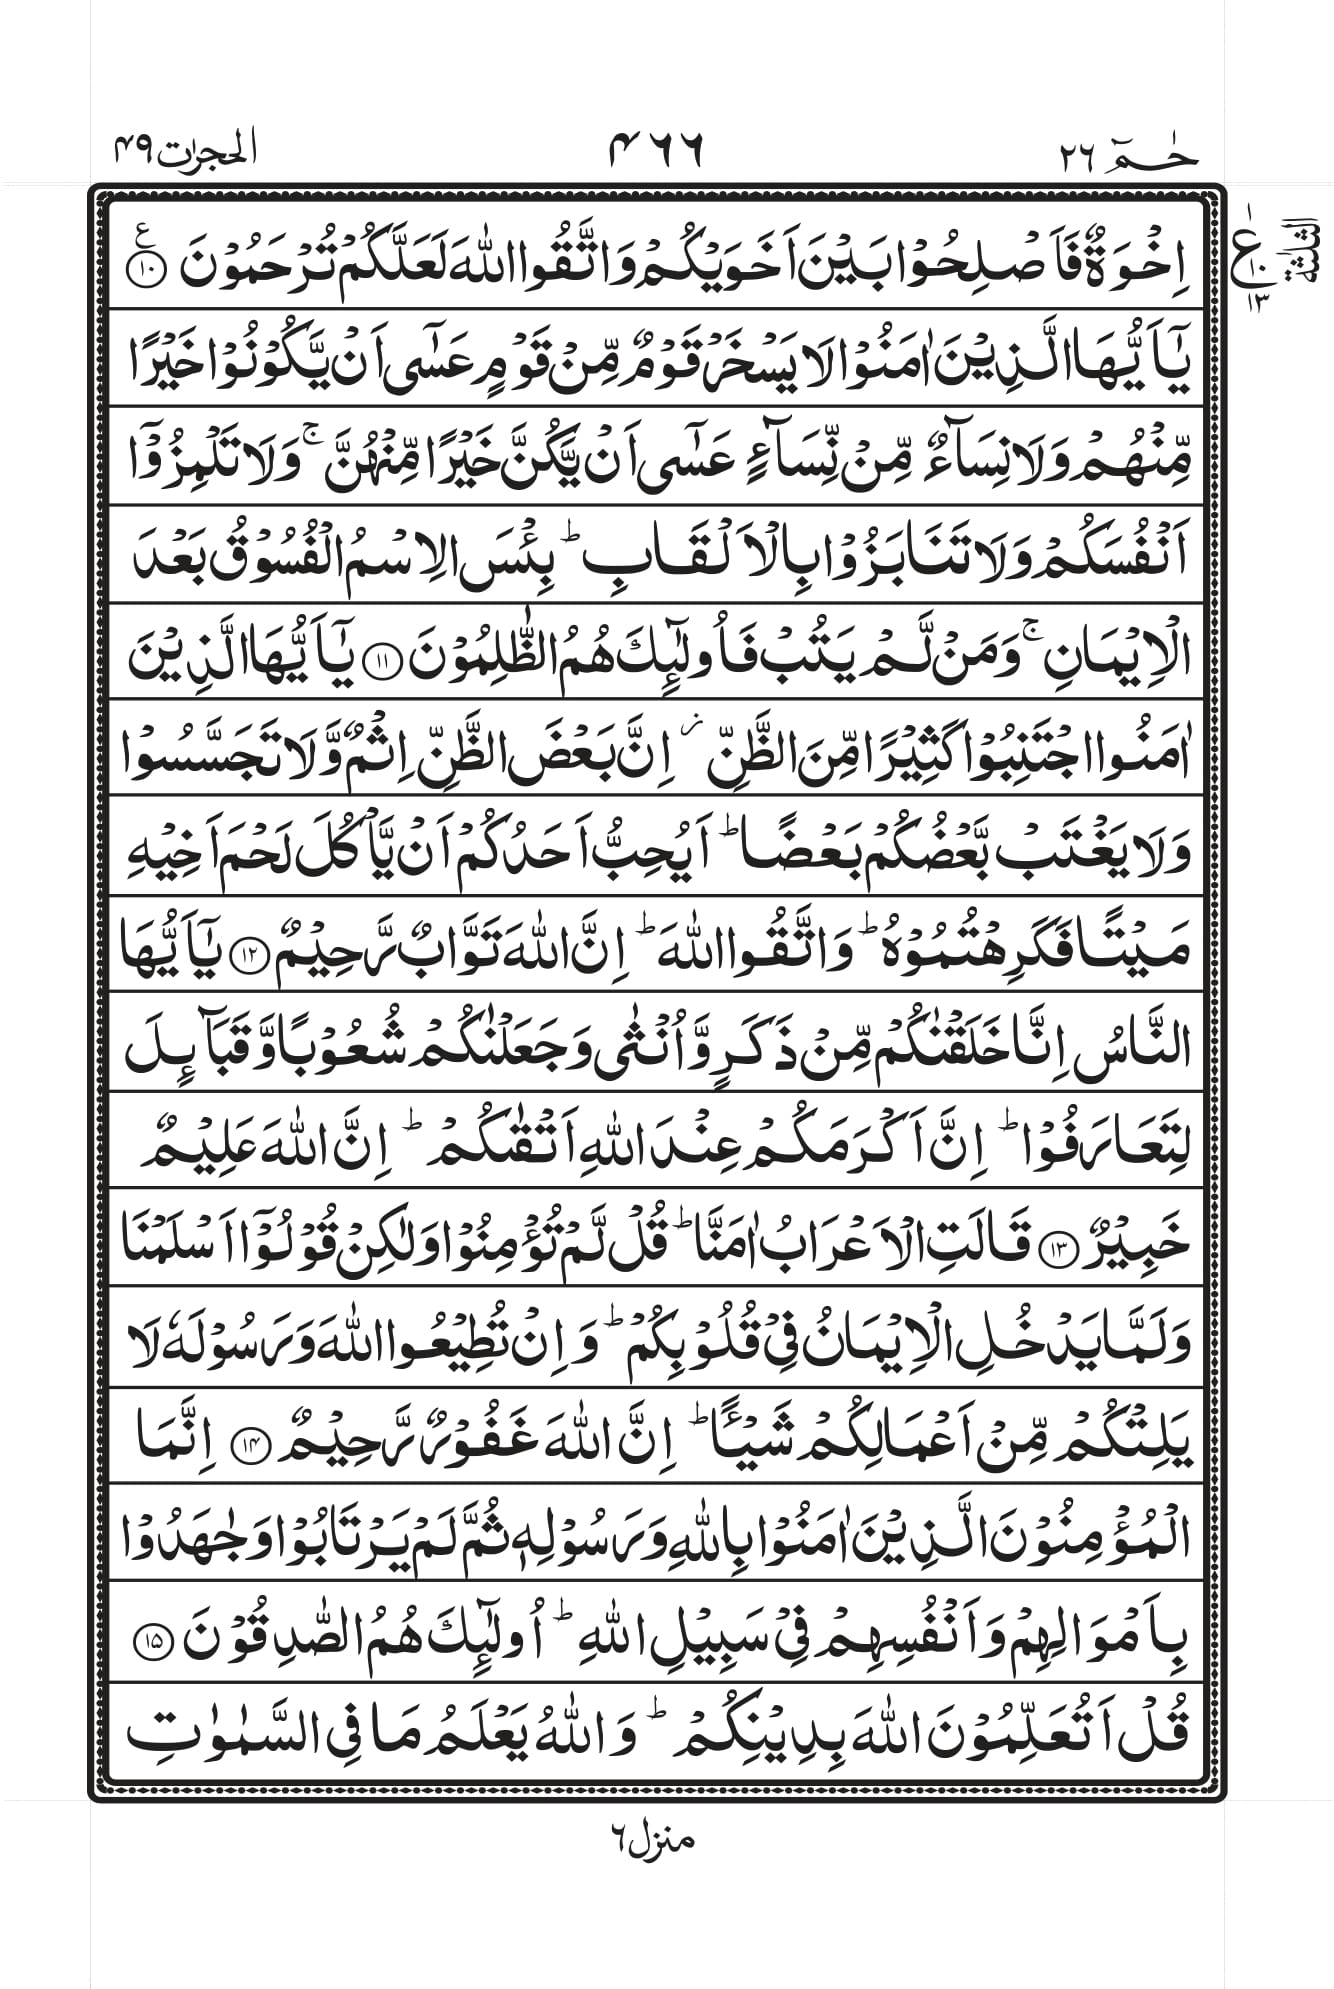 حٰـمٓ ٢٦
٤٦٦
الحجرات ٤٩
اِخْوَةٌ فَاَصْلِحُوْا بَيْنَ اَخَوَيْكُمْ وَاتَّقُوا اللّٰهَ لَعَلَّكُمْ تُرْحَمُوْنَ ع ١٠
ع ١ ١٠ ١٣
الثلثة
يٰٓاَيُّهَا الَّذِيْنَ اٰمَنُوْا لَا يَسْخَرْ قَوْمٌ مِّنْ قَوْمٍ عَسٰٓى اَنْ يَّكُوْنُوْا خَيْرًا
مِّنْهُمْ وَلَا نِسَآءٌ مِّنْ نِّسَآءٍ عَسٰٓى اَنْ يَّكُنَّ خَيْرًا مِّنْهُنَّ ۚ وَلَا تَلْمِزُوْٓا
اَنْفُسَكُمْ وَلَا تَنَابَزُوْا بِالْاَلْقَابِ ؕ بِئْسَ الِاسْمُ الْفُسُوْقُ بَعْدَ
الْاِيْمَانِ ۚ وَمَنْ لَّمْ يَتُبْ فَاُولٰٓئِكَ هُمُ الظّٰلِمُوْنَ ١١ يٰٓاَيُّهَا الَّذِيْنَ
اٰمَنُوا اجْتَنِبُوْا كَثِيْرًا مِّنَ الظَّنِّ ز اِنَّ بَعْضَ الظَّنِّ اِثْمٌ وَّلَا تَجَسَّسُوْا
وَلَا يَغْتَبْ بَّعْضُكُمْ بَعْضًا ؕ اَيُحِبُّ اَحَدُكُمْ اَنْ يَّاْكُلَ لَحْمَ اَخِيْهِ
مَيْتًا فَكَرِهْتُمُوْهُ ؕ وَاتَّقُوا اللّٰهَ ؕ اِنَّ اللّٰهَ تَوَّابٌ رَّحِيْمٌ ١٢ يٰٓاَيُّهَا
النَّاسُ اِنَّا خَلَقْنٰكُمْ مِّنْ ذَكَرٍ وَّاُنْثٰى وَجَعَلْنٰكُمْ شُعُوْبًا وَّقَبَآئِلَ
لِتَعَارَفُوْا ؕ اِنَّ اَكْرَمَكُمْ عِنْدَ اللّٰهِ اَتْقٰىكُمْ ؕ اِنَّ اللّٰهَ عَلِيْمٌ
خَبِيْرٌ ١٣ قَالَتِ الْاَعْرَابُ اٰمَنَّا ؕ قُلْ لَّمْ تُؤْمِنُوْا وَلٰكِنْ قُوْلُوْٓا اَسْلَمْنَا
وَلَمَّا يَدْخُلِ الْاِيْمَانُ فِيْ قُلُوْبِكُمْ ؕ وَاِنْ تُطِيْعُوا اللّٰهَ وَرَسُوْلَهٗ لَا
يَلِتْكُمْ مِّنْ اَعْمَالِكُمْ شَيْـًٔا ؕ اِنَّ اللّٰهَ غَفُوْرٌ رَّحِيْمٌ ١٤ اِنَّمَا
الْمُؤْمِنُوْنَ الَّذِيْنَ اٰمَنُوْا بِاللّٰهِ وَرَسُوْلِهٖ ثُمَّ لَمْ يَرْتَابُوْا وَجٰهَدُوْا
بِاَمْوَالِهِمْ وَاَنْفُسِهِمْ فِيْ سَبِيْلِ اللّٰهِ ؕ اُولٰٓئِكَ هُمُ الصّٰدِقُوْنَ ١٥
قُلْ اَتُعَلِّمُوْنَ اللّٰهَ بِدِيْنِكُمْ ؕ وَاللّٰهُ يَعْلَمُ مَا فِي السَّمٰوٰتِ
منزل ٦